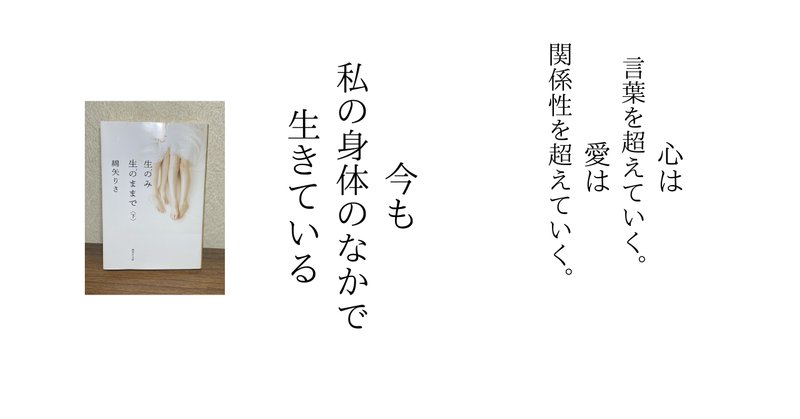 心は
言葉を超えていく。
愛は
関係性を超えていく。
今も
私の身体のなかで
生きている
生のみ
生のままで〈下〉
綿矢りさ